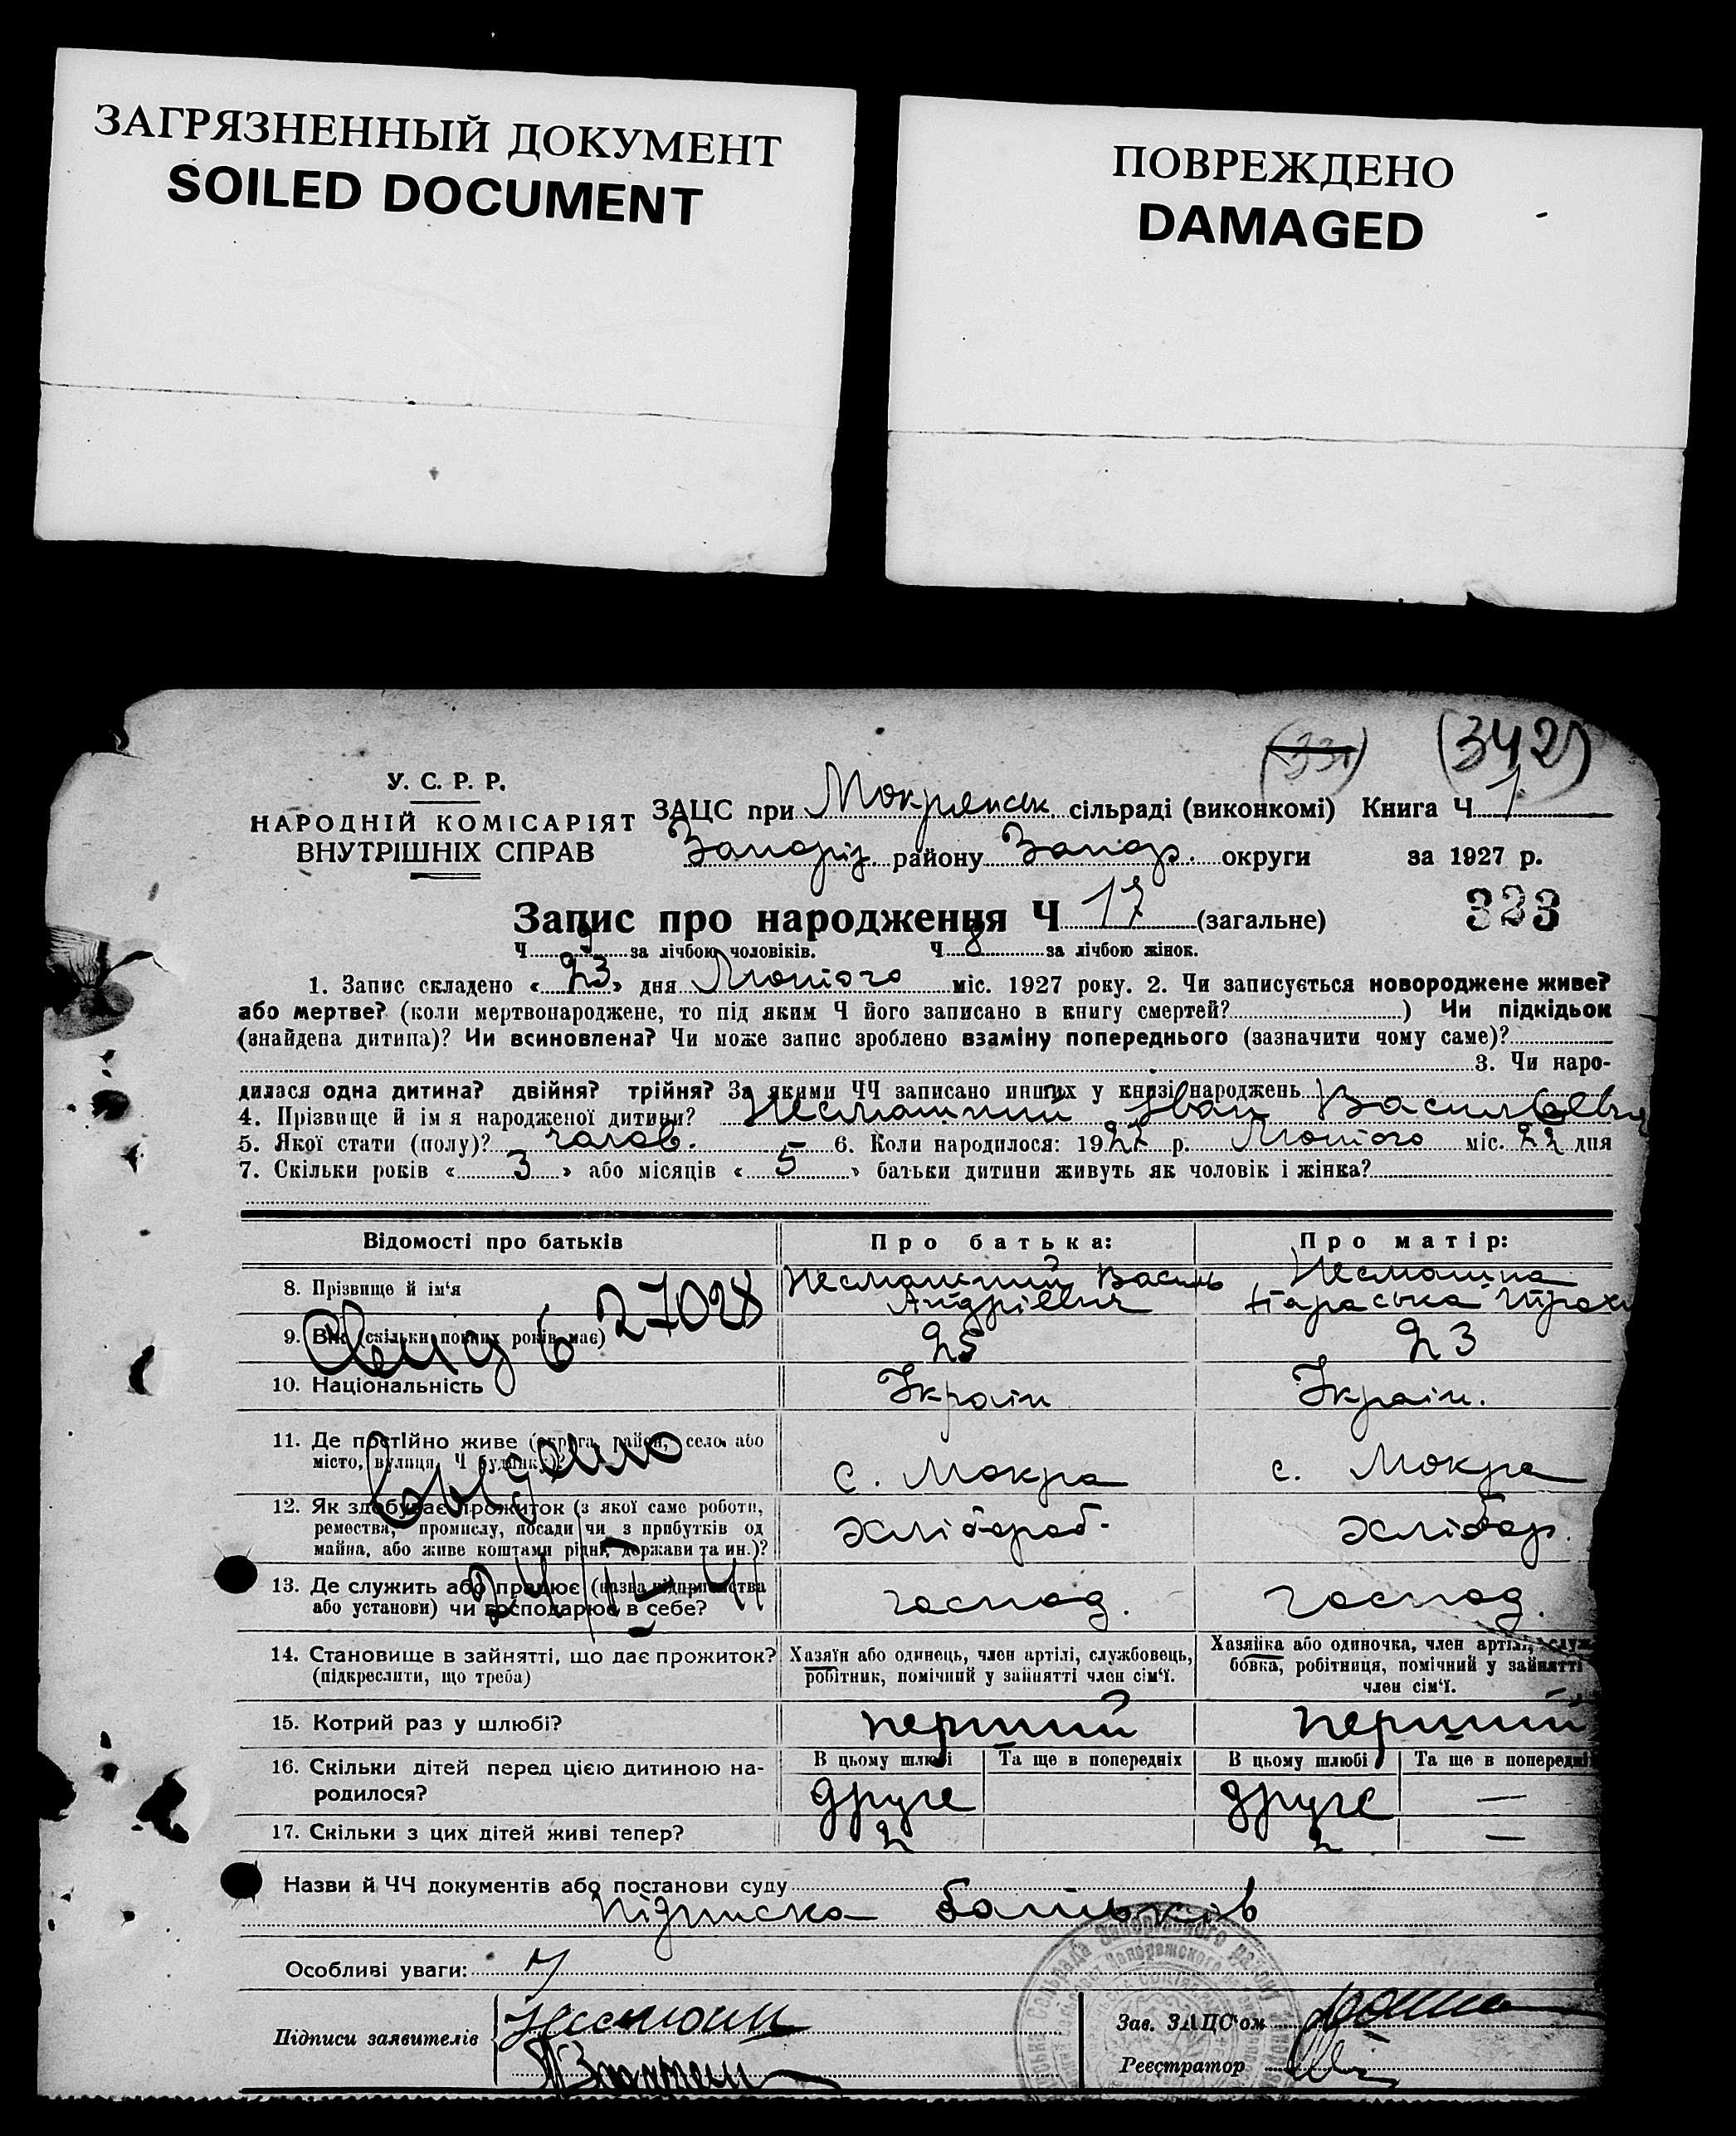 ЗАГРЯЗНЕННЫЙ ДОКУМЕНТ
SOILED DOCUMENT
ПОВРЕЖДЕНО
DAMAGED
(331) (342)
У. С. Р. Р.
НАРОДНІЙ КОМІСАРІЯТ
ВНУТРІШНІХ СПРАВ
ЗАЦС при Мокрянськ сільраді (виконкомі) Книга Ч 1
Запоріз. району Запор. округи за 1927 р.
Запис про народження Ч 17 (загальне) 333
Ч 9 за лічбою чоловіків. Ч 8 за лічбою жінок.
1. Запис складено « 23 » дня Лютого міс. 1927 року. 2. Чи записується новороджене живе?
або мертве? (коли мертвонароджене, то під яким Ч його записано в книгу смертей?) Чи підкідьок
(знайдена дитина)? Чи всиновлена? Чи може запис зроблено взаміну попереднього (зазначити чому саме)?
3. Чи наро-
дилася одна дитина? двійня? трійня? За якими ЧЧ записано инших у книзі народжень
4. Прізвище й ім я народженої дитини? Несмашний Іван Васильевич
5. Якої стати (полу)? чолов. 6. Коли народилося: 1927 р. Лютого міс. 22 дня
7. Скільки років « 3 » або місяців « 5 » батьки дитини живуть як чоловік і жінка?
Відомості про батьків Про батька: Про матір:
8. Прізвище й ім'я Несмашний Василь Несмашна
Андрієвич Параська Трохи
27028
9. Вік (скільки повних років має) 25 23
10. Національність Україн Україн.
11. Де постійно живе (округа, район, село або
місто, вулиця, Ч будинку)? с. Мокра с. Мокра
видано
12. Як здобуває прожиток (з якої саме роботи,
ремества, промислу, посади чи з прибутків од
майна, або живе коштами рідні, держави та ин.)? хлібороб. хлібор.
13. Де служить або працює (назва підприємства
або установи) чи господарює в себе? господ. господ.
14. Становище в зайнятті, що дає прожиток?
(підкреслити, що треба)
Хазяїн або одинець, член артілі, службовець,
робітник, помічний у зайнятті член сім'ї.
Хазяйка або одиночка, член артілі, служ
бовка, робітниця, помічний у зайнятті
член сім'ї.
15. Котрий раз у шлюбі? перший перший
16. Скільки дітей перед цією дитиною на-
родилося?
В цьому шлюбі Та ще в попередніх В цьому шлюбі Та ще в попередні
друге друге —
17. Скільки з цих дітей живі тепер? 2 2 —
Назви й ЧЧ документів або постанови суду
підписка батьків
Особливі уваги:
Підписи заявителів
Зав. ЗАЦС'ом
Реєстратор